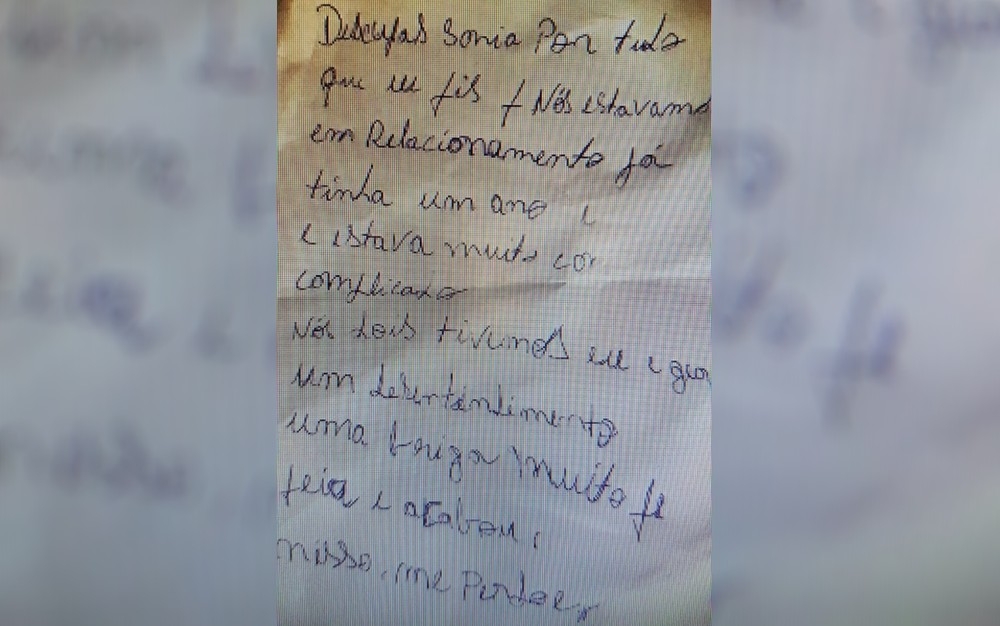 Desculpas Sonia Por tudo
que eu fis f Nós estavamo
em Relacionamento já
tinha um ano e
e estava muito con
complicado
Nós dois tivemos eu e
um desentendimento
uma briga muito fe
feia e acabou
nisso. me Perdoe